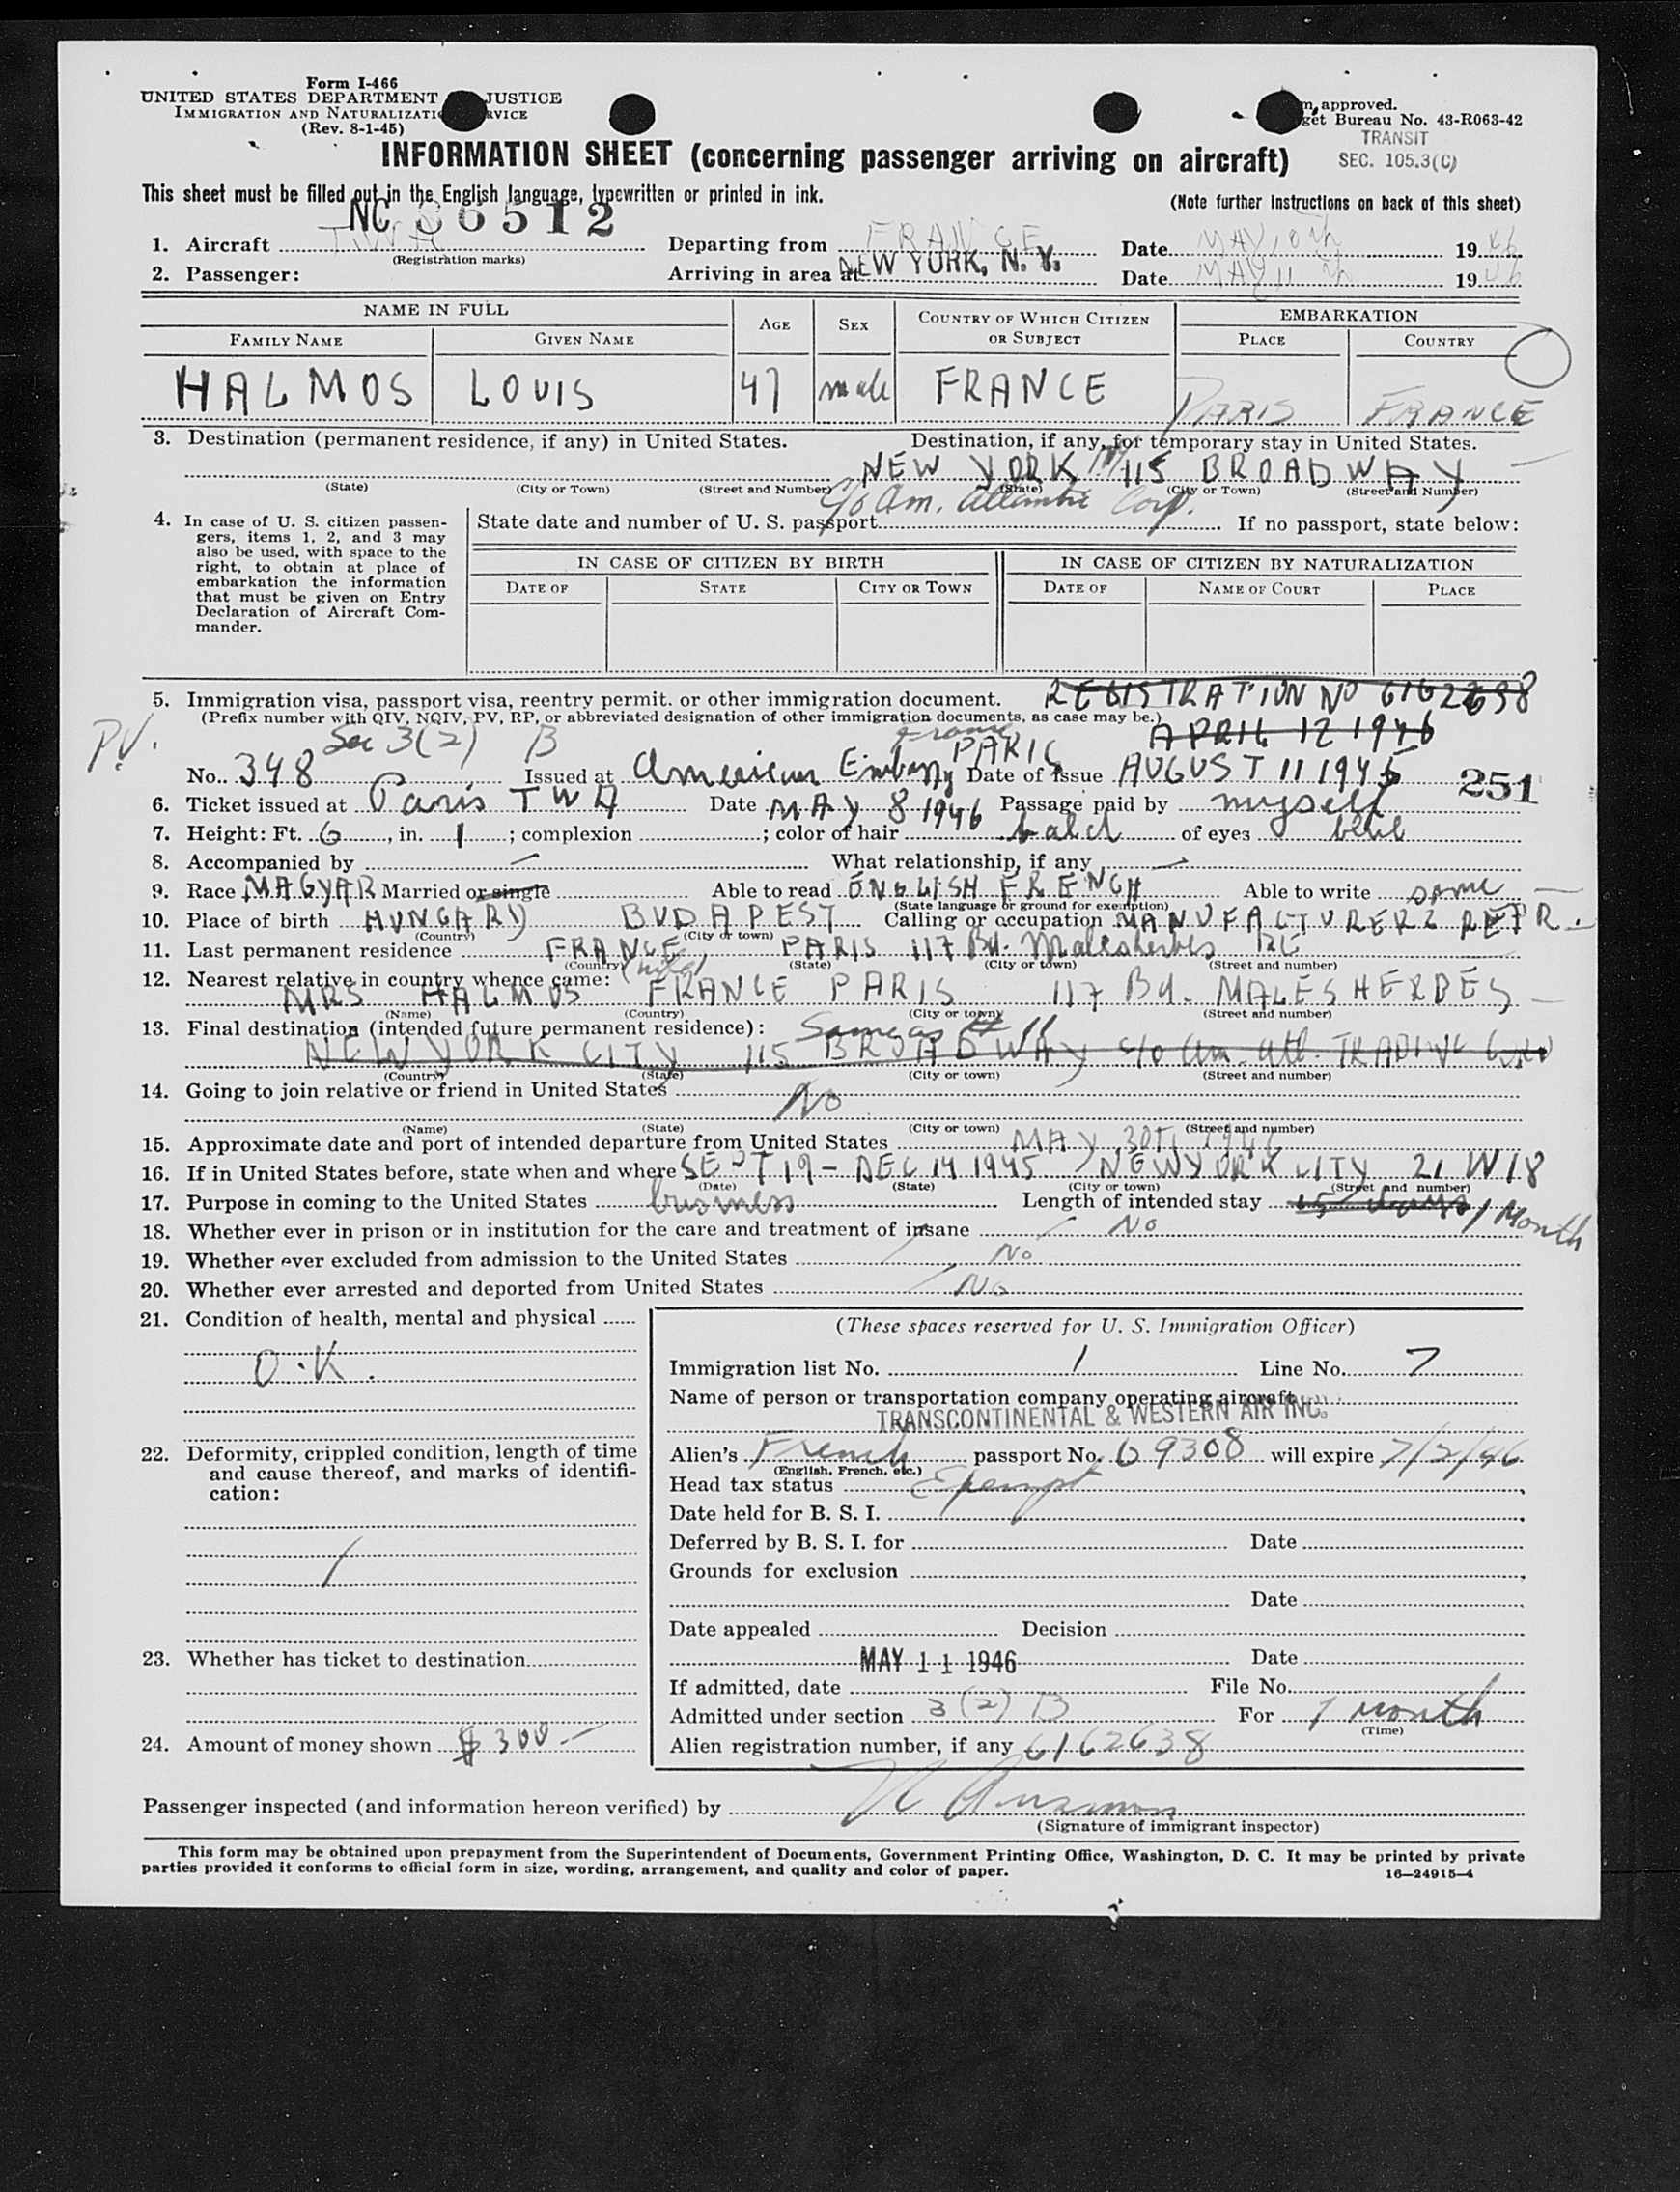 Form I-466
UNITED STATES DEPARTMENT JUSTICE
IMMIGRATION AND NATURALIZATI RVICE
(Rev. 8-1-45)
m approved.
get Bureau No. 43-R063-42
TRANSIT
SEC. 105.3(C)
INFORMATION SHEET (concerning passenger arriving on aircraft)
This sheet must be filled out in the English language, typewritten or printed in ink.
(Note further instructions on back of this sheet)
NC 86512
1. Aircraft T.W.A Departing from FRANCE Date MAY 10th 1946
(Registration marks)
2. Passenger: Arriving in area at NEW YORK, N. Y. Date MAY 11th 1946
NAME IN FULL AGE SEX COUNTRY OF WHICH CITIZEN OR SUBJECT EMBARKATION
FAMILY NAME GIVEN NAME PLACE COUNTRY
HALMOS LOUIS 47 male FRANCE PARIS FRANCE
3. Destination (permanent residence, if any) in United States. Destination, if any, for temporary stay in United States.
NEW YORK 115 BROADWAY
(State) (City or Town) (Street and Number) (State) (City or Town) (Street and Number)
c/o Am. Atlantic Corp.
4. In case of U. S. citizen passengers, items 1, 2, and 3 may also be used, with space to the right, to obtain at place of embarkation the information that must be given on Entry Declaration of Aircraft Commander.
State date and number of U. S. passport If no passport, state below:
IN CASE OF CITIZEN BY BIRTH IN CASE OF CITIZEN BY NATURALIZATION
DATE OF STATE CITY OR TOWN DATE OF NAME OF COURT PLACE
5. Immigration visa, passport visa, reentry permit, or other immigration document. REGISTRATION NO 6162638
(Prefix number with QIV, NQIV, PV, RP, or abbreviated designation of other immigration documents, as case may be.)
APRIL 12 1946
PV. Sec 3(2) B France
No. 348 Issued at American Embassy PARIS Date of issue AUGUST 11 1945 251
6. Ticket issued at Paris TWA Date MAY 8 1946 Passage paid by myself
7. Height: Ft. 6, in. 1; complexion ; color of hair bald of eyes blue
8. Accompanied by — What relationship, if any —
9. Race MAGYAR Married or single Able to read ENGLISH FRENCH Able to write same
(State language or ground for exemption)
10. Place of birth HUNGARY BUDAPEST Calling or occupation MANUFACTURERS REPR.
(Country) (City or town)
11. Last permanent residence FRANCE PARIS 117 Bd. Malesherbes
(Country) (State) (City or town) (Street and number)
12. Nearest relative in country whence came: (wife)
MRS HALMOS FRANCE PARIS 117 Bd. MALESHERBES
(Name) (Country) (City or town) (Street and number)
13. Final destination (intended future permanent residence): Same as # 11
NEW YORK CITY 115 BROADWAY c/o Am. Atl. TRADING
(Country) (State) (City or town) (Street and number)
14. Going to join relative or friend in United States
No
(Name) (State) (City or town) (Street and number)
15. Approximate date and port of intended departure from United States MAY 30th 1946
16. If in United States before, state when and where SEPT 19 - DEC 14 1945 NEW YORK CITY 21 W 18
(Date) (State) (City or town) (Street and number)
17. Purpose in coming to the United States business Length of intended stay 15 days 1 Month
18. Whether ever in prison or in institution for the care and treatment of insane No
19. Whether ever excluded from admission to the United States No
20. Whether ever arrested and deported from United States No
21. Condition of health, mental and physical
O.K.
(These spaces reserved for U. S. Immigration Officer)
Immigration list No. 1 Line No. 7
Name of person or transportation company operating aircraft
TRANSCONTINENTAL & WESTERN AIR INC.
22. Deformity, crippled condition, length of time and cause thereof, and marks of identification:
/
Alien's French passport No. 69308 will expire 7/2/46
(English, French, etc.)
Head tax status Exempt
Date held for B. S. I.
Deferred by B. S. I. for Date
Grounds for exclusion
Date
Date appealed Decision
23. Whether has ticket to destination
MAY 11 1946 Date
If admitted, date File No.
Admitted under section 3(2) B For 1 month
(Time)
24. Amount of money shown $ 300 —
Alien registration number, if any 6162638
Passenger inspected (and information hereon verified) by
(Signature of immigrant inspector)
This form may be obtained upon prepayment from the Superintendent of Documents, Government Printing Office, Washington, D. C. It may be printed by private
parties provided it conforms to official form in size, wording, arrangement, and quality and color of paper.
16—24915-4